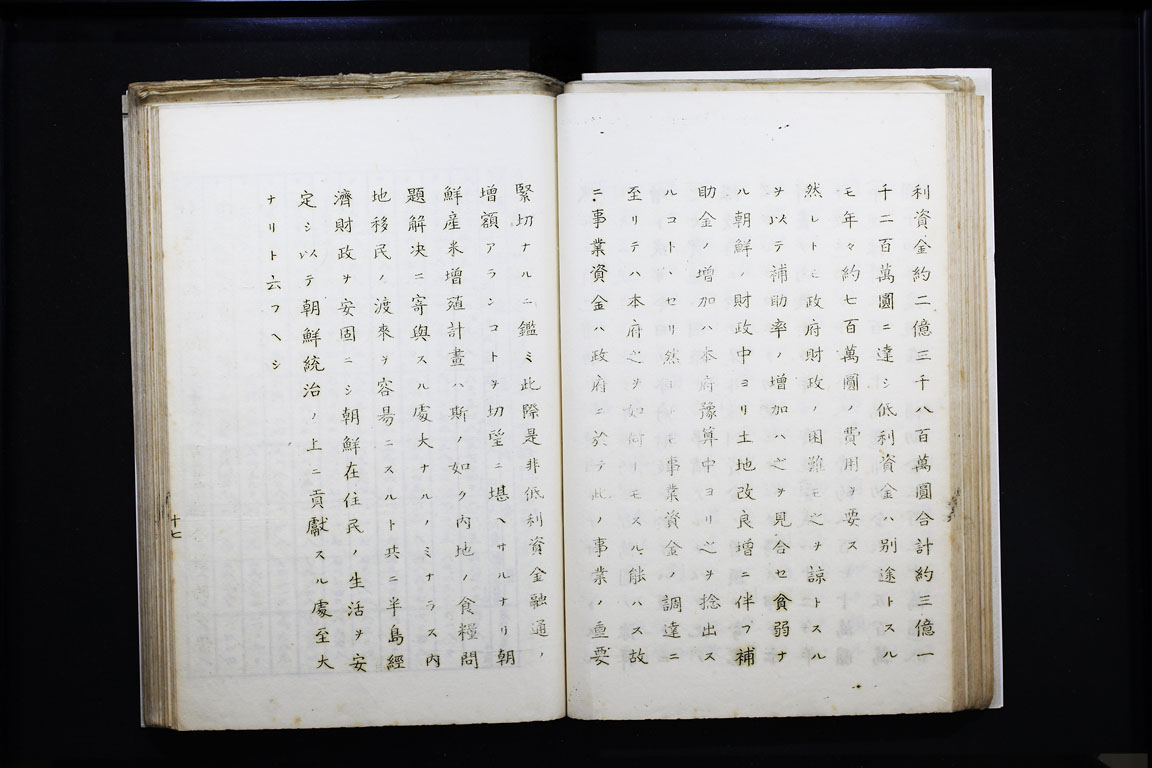 利資金約二億三千八百萬圓合計約三億一
千二百萬圓ニ達シ低利資金ハ別途トスル
モ年々約七百萬圓ノ費用ヲ要ス
然レトモ政府財政ノ困難モ之ヲ諒トスル
ヲ以テ補助率ノ增加ハ之ヲ見合セ貧弱ナ
ル朝鮮ノ財政中ヨリ土地改良增ニ伴フ補
助金ノ增加ハ本府豫算中ヨリ之ヲ捻出ス
ルコトヽセリ然レトモ事業資金ノ調達ニ
至リテハ本府之ヲ如何トモスル能ハス故
ニ事業資金ハ政府ニ於テ此ノ事業ノ重要
緊切ナルニ鑑ミ此際是非低利資金融通ノ
增額アランコトヲ切望ニ堪ヘサルナリ朝
鮮産米增殖計畫ハ斯ノ如ク內地ノ食糧問
題解決ニ寄與スル處大ナルノミナラス內
地移民ノ渡來ヲ容昜ニスルト共ニ半島經
濟財政ヲ安固ニシ朝鮮在住民ノ生活ヲ安
定シ以テ朝鮮統治ノ上ニ貢獻スル處至大
ナリト云フヘシ
十七